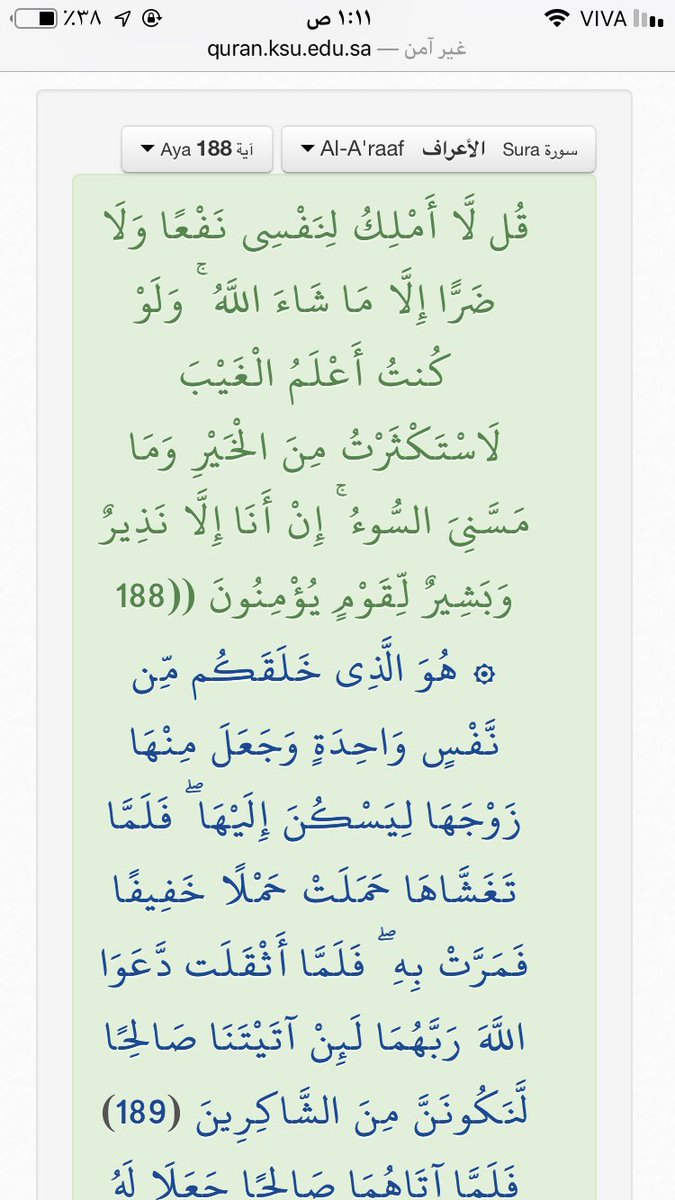 ٪٣٨ ١:١١ ص VIVA
quran.ksu.edu.sa — غير آمن
سورة Sura الأعراف Al-A'raaf آية Aya 188
قُل لَّا أَمْلِكُ لِنَفْسِى نَفْعًا وَلَا
ضَرًّا إِلَّا مَا شَاءَ اللَّهُ ۚ وَلَوْ
كُنتُ أَعْلَمُ الْغَيْبَ
لَاسْتَكْثَرْتُ مِنَ الْخَيْرِ وَمَا
مَسَّنِىَ السُّوءُ ۚ إِنْ أَنَا إِلَّا نَذِيرٌ
وَبَشِيرٌ لِّقَوْمٍ يُؤْمِنُونَ ((188
۞ هُوَ الَّذِى خَلَقَكُم مِّن
نَّفْسٍ وَاحِدَةٍ وَجَعَلَ مِنْهَا
زَوْجَهَا لِيَسْكُنَ إِلَيْهَا ۖ فَلَمَّا
تَغَشَّاهَا حَمَلَتْ حَمْلًا خَفِيفًا
فَمَرَّتْ بِهِ ۖ فَلَمَّا أَثْقَلَت دَّعَوَا
اللَّهَ رَبَّهُمَا لَئِنْ آتَيْتَنَا صَالِحًا
لَّنَكُونَنَّ مِنَ الشَّاكِرِينَ (189)
فَلَمَّا آتَاهُمَا صَالِحًا جَعَلَا لَهُ